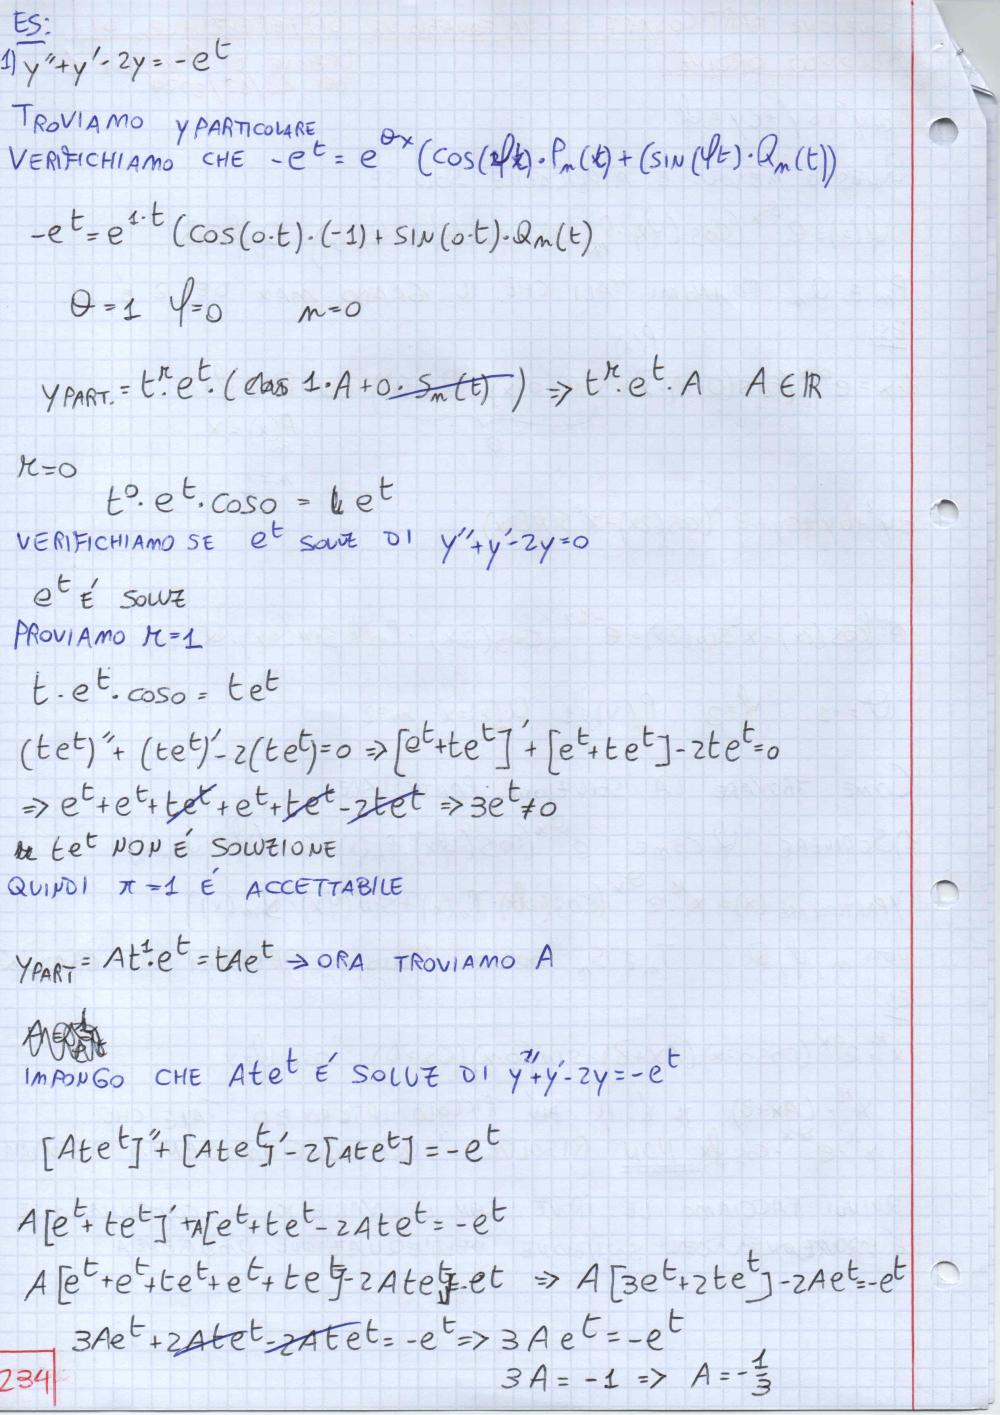 ES:
1) y''+y'-2y=-e^t
TROVIAMO y PARTICOLARE
VERIFICHIAMO CHE -e^t = e^θx (cos(φt)·P_n(t)+(sin(φt)·Q_m(t))
-e^t=e^1·t (cos(0·t)·(-1)+SIN(0·t)·Q_m(t)
θ=1 φ=0 m=0
y PART.=t^r·e^t·(1·A+0·S_m(t)) => t^r·e^t·A A∈ℝ
r=0
t^0·e^t·cos0 = e^t
VERIFICHIAMO SE e^t SOLUZ DI y''+y'-2y=0
e^t É SOLUZ
PROVIAMO r=1
t·e^t·cos0=te^t
(te^t)''+(te^t)'-2(te^t)=0 => [e^t+te^t]'+[e^t+te^t]-2te^t=0
=> e^t+e^t+te^t+e^t+te^t-2te^t => 3e^t≠0
te^t NON É SOLUZIONE
QUINDI r=1 É ACCETTABILE
y PART=At^1·e^t=tAe^t → ORA TROVIAMO A
IMPONGO CHE Ate^t É SOLUZ DI y''+y'-2y=-e^t
[Ate^t]''+[Ate^t]'-2[Ate^t]=-e^t
A[e^t+te^t]'+A[e^t+te^t-2Ate^t=-e^t
A[e^t+e^t+te^t+e^t+te^t]-2Ate^t=-e^t => A[3e^t+2te^t]-2Ae^t=-e^t
3Ae^t+2Ate^t-2Ate^t=-e^t => 3Ae^t=-e^t
3A=-1 => A=-1/3
234